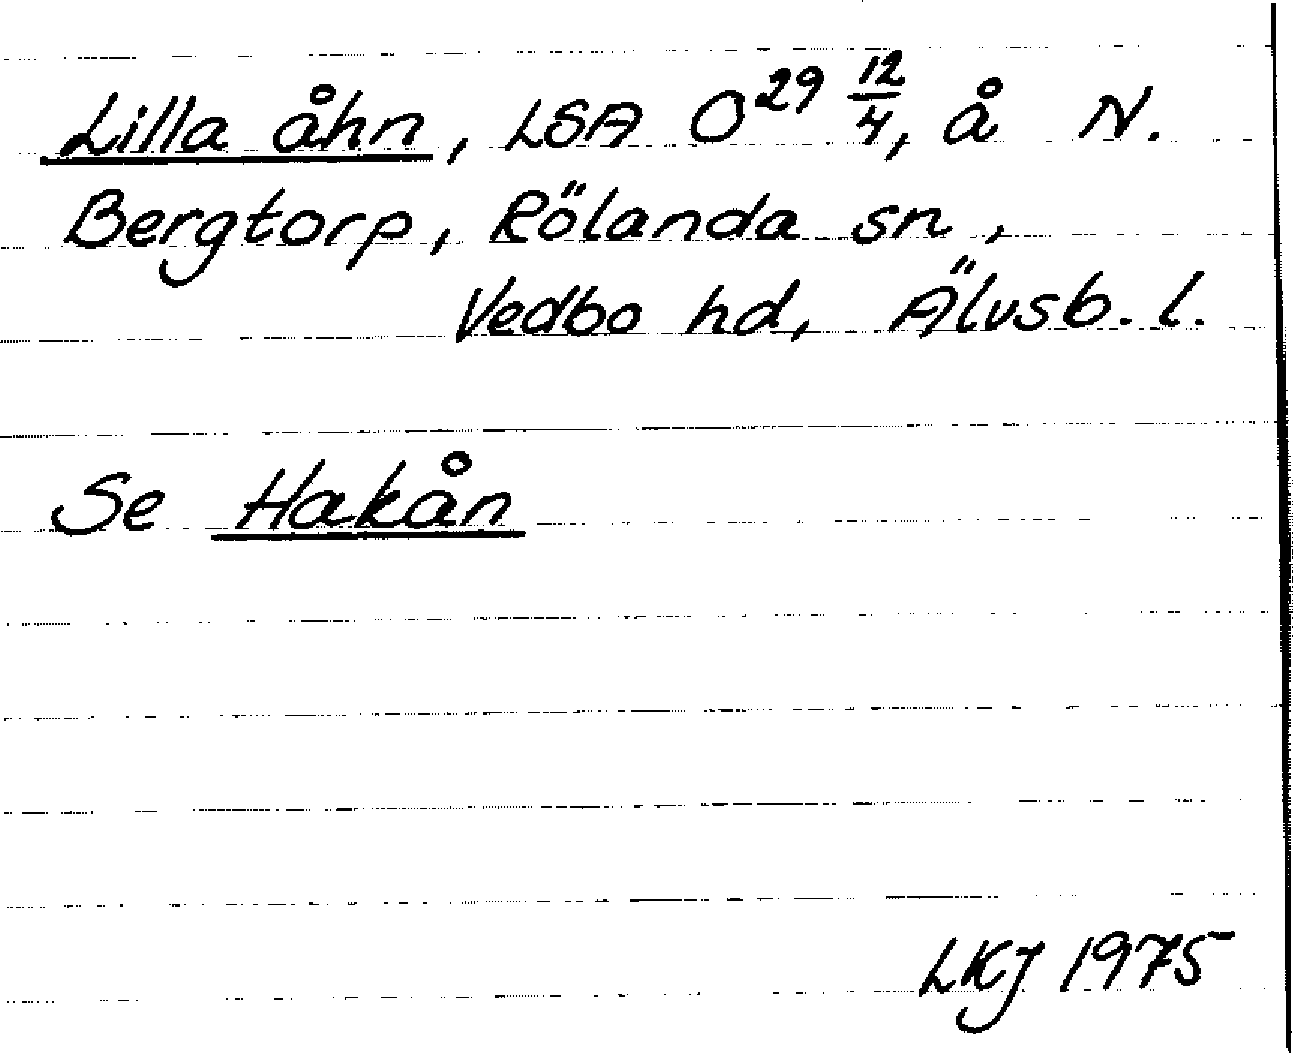 Lilla åhn, LSA O29 12/4, å N.
Bergtorp, Rölanda sn,
Vedbo hd, Älvsb. l.
Se Hakån
LKJ 1975